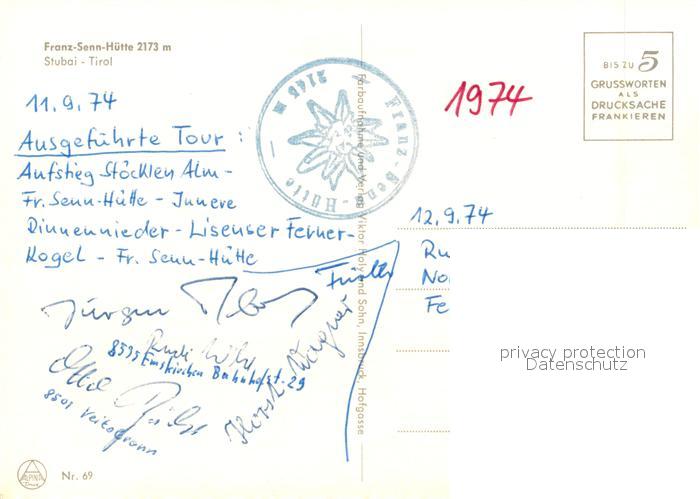 Franz-Senn-Hütte 2173 m
Stubai - Tirol
11.9.74
Ausgeführte Tour :
Aufstieg Stöcklen Alm -
Fr. Senn-Hütte - Innere
Rinnennieder - Lisenser Ferner-
Kogel - Fr. Senn-Hütte
Jürgen
Rudi
8535 Emskirchen Bahnhofst. 29
Otto
8501 Veitsbronn
Horst Wagner
Nr. 69
Franz-Senn-Hütte
2173 m
Farbaufnahme und Verlag Viktor Holy und Sohn, Innsbruck, Hofgasse
1974
BIS ZU 5
GRUSSWORTEN
ALS
DRUCKSACHE
FRANKIEREN
12.9.74
Ru
No
Fe
privacy protection
Datenschutz